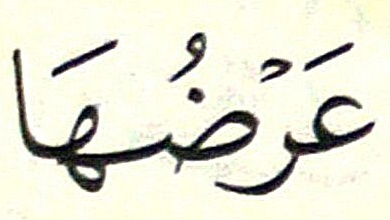 عَرْضُهَا